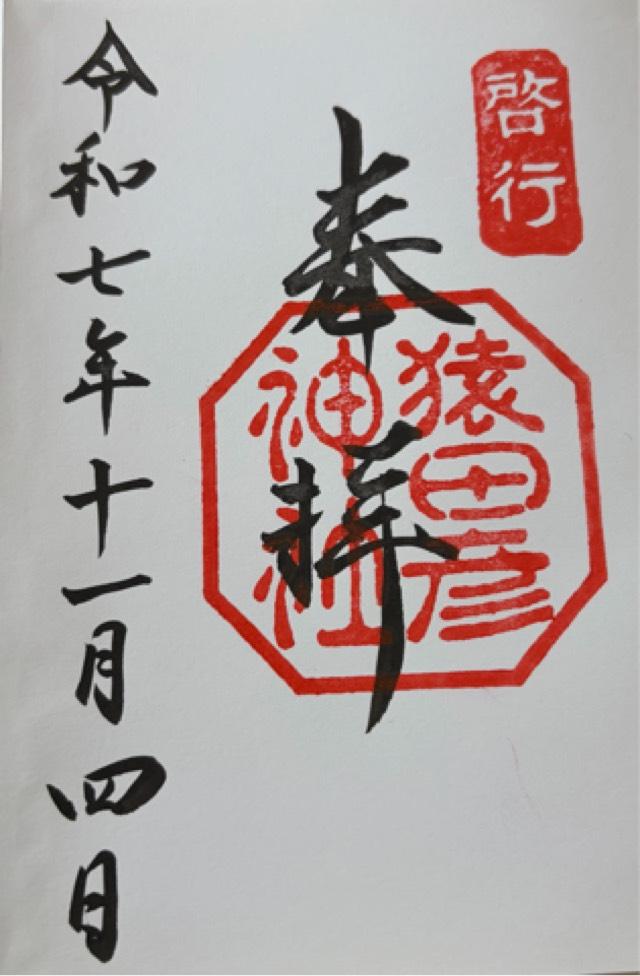 啓行
猿田彦
神社
奉拝
令和七年十一月四日